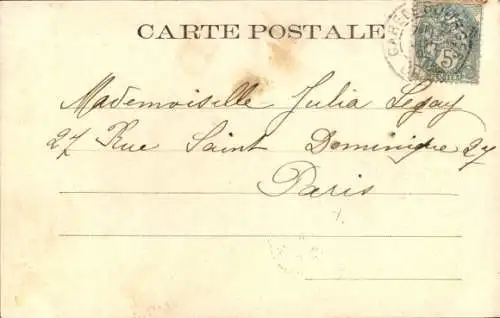 CARTE POSTALE
5
Mademoiselle Julia Legay
27 Rue Saint Dominique 27
Paris